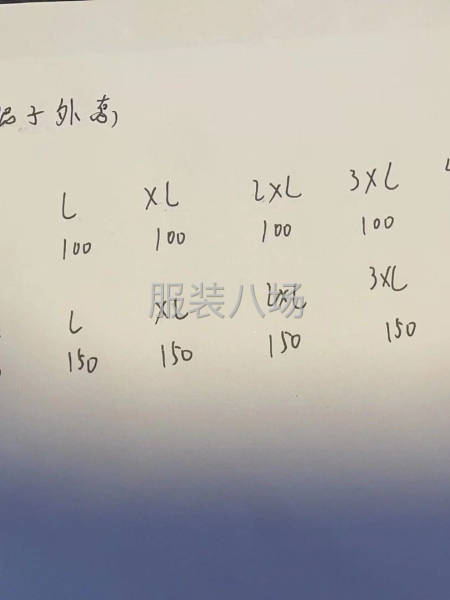 子外套
L XL 2XL 3XL
100 100 100 100
L XL 2XL 3XL
150 150 150 150
服装八场